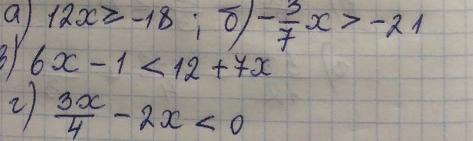 а) 12x ≥ -18 ; б) -3/7 x > -21
в) 6x - 1 < 12 + 7x
г) 3x/4 - 2x < 0